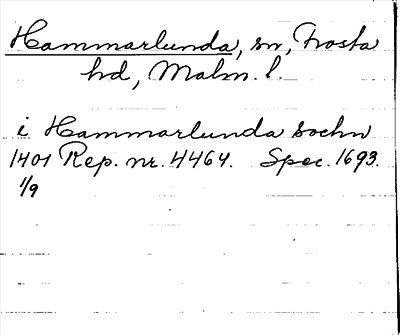 Hammarlunda, sn, Frosta
hd, Malm. l.
i Hammarlunda sochn
1401 Rep. nr. 4464. Spec. 1693.
1/9